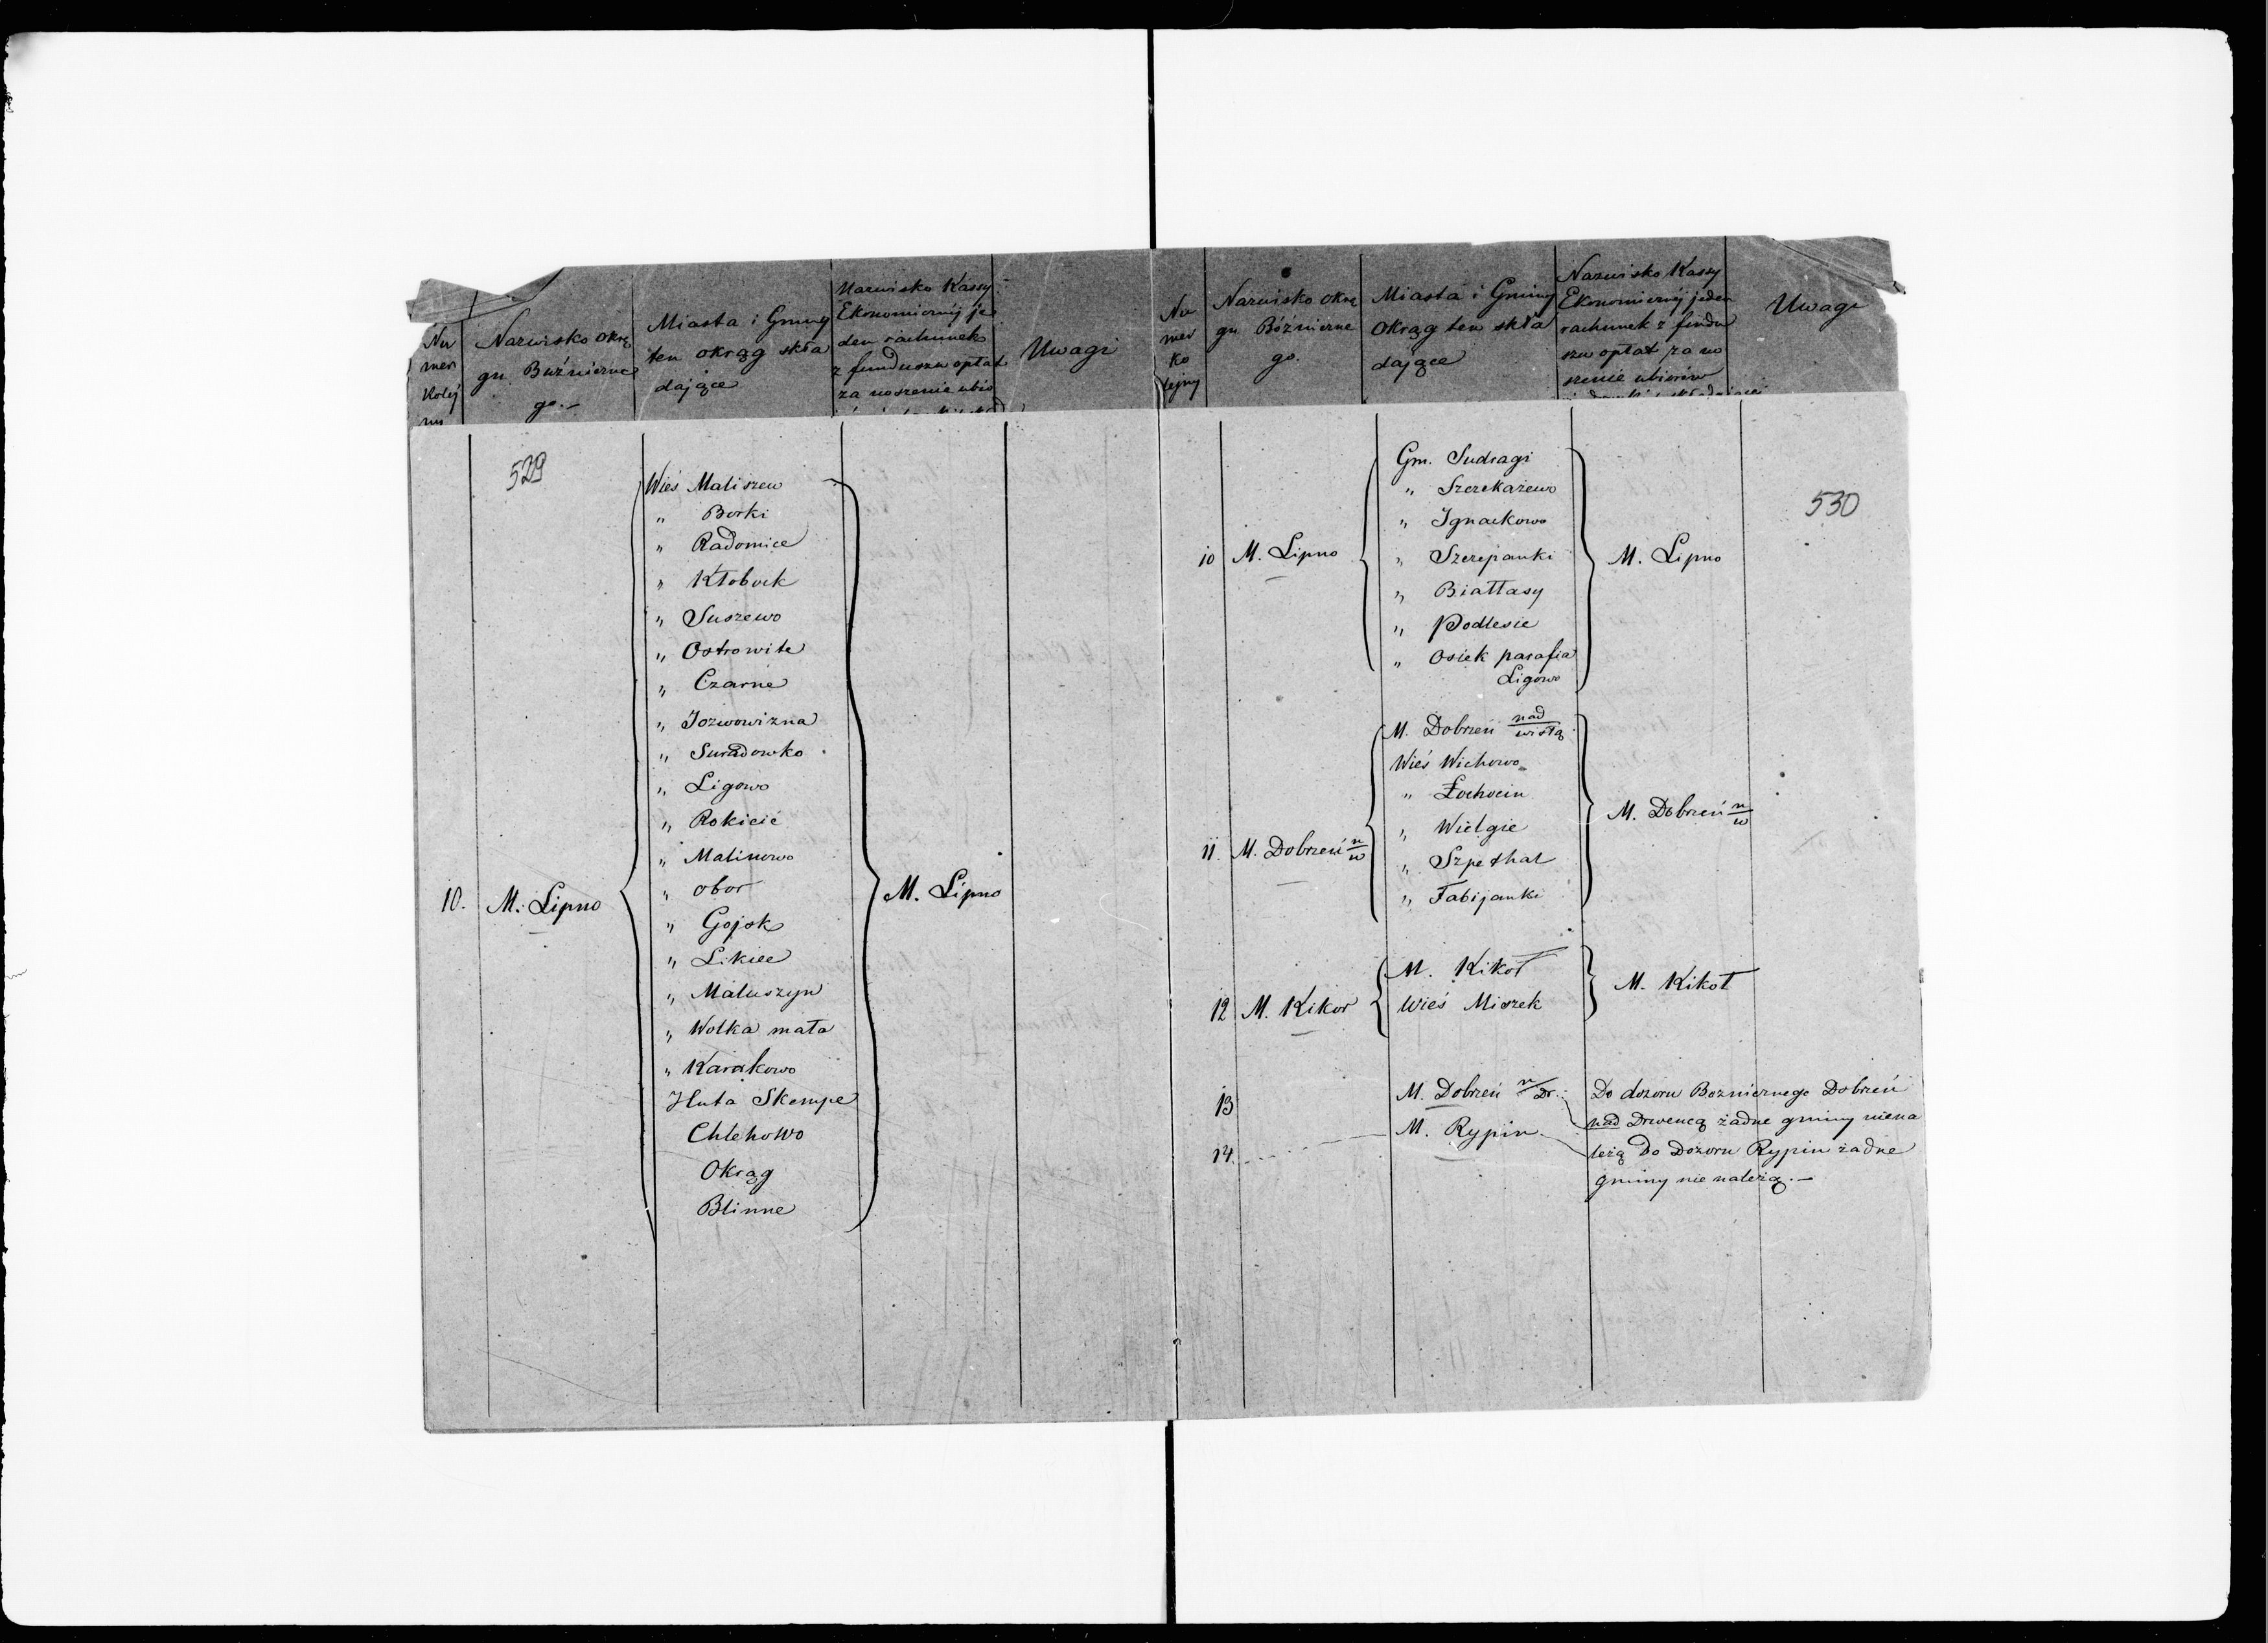 Nu
mer
Koléj
ny
Nazwisko okrę
gu Bużniczne
go.-
Miasta i Gminy
ten okrąg skła
dające
Nazwisko Kassy
Ekonomicznéj je
den rachunek
z funduszu opłat
za noszenie ubio
Uwagi
529
10.
M. Lipno
Wieś Maliszew
" Borki
" Radomice
" Kłobuck
" Suszewo
" Ostrowite
" Czarne
" Jozwowizna
" Suradowko
" Ligowo
" Rokicie
" Malinowo
" obor
" Gojsk
" Likiec
" Maluszyn
" Wolka mała
" Karakowo
Huta Skempe
Chlehowo
Okrąg
Blinne
M. Lipno
Nu
mer
ko
lejny
Nazwisko okrę
gu Bóźniczne
go.
Miasta i Gminy
Okrąg ten skła
dające
Nazwisko Kassy
Ekonomicznéj jeden
rachunek z fundu
szu opłat za no
szenie ubiorów
Uwagi
530
10
M. Lipno
Gm. Sudragi
" Szczekażewo
" Ignackowo
" Szczepanki
" Białłasy
" Podlesie
" Osiek parafia
Ligowo
M. Lipno
11.
M. Dobrzeń n/w
M. Dobrzeń nad
wisłą
Wieś Wichowo
" Łochocin
" Wielgie
" Szpethal
" Fabijanki
M. Dobrzeń n/w
12
M. Kikoł
M. Kikoł
Wieś Miszek
M. Kikoł
13
M. Dobrzeń n/Dr.
14.
M. Rypin
Do dozoru Boznicznego Dobrzeń
nad Drwencą żadne gminy niena
leżą Do Dozoru Rypin żadne
gminy nie należą.-